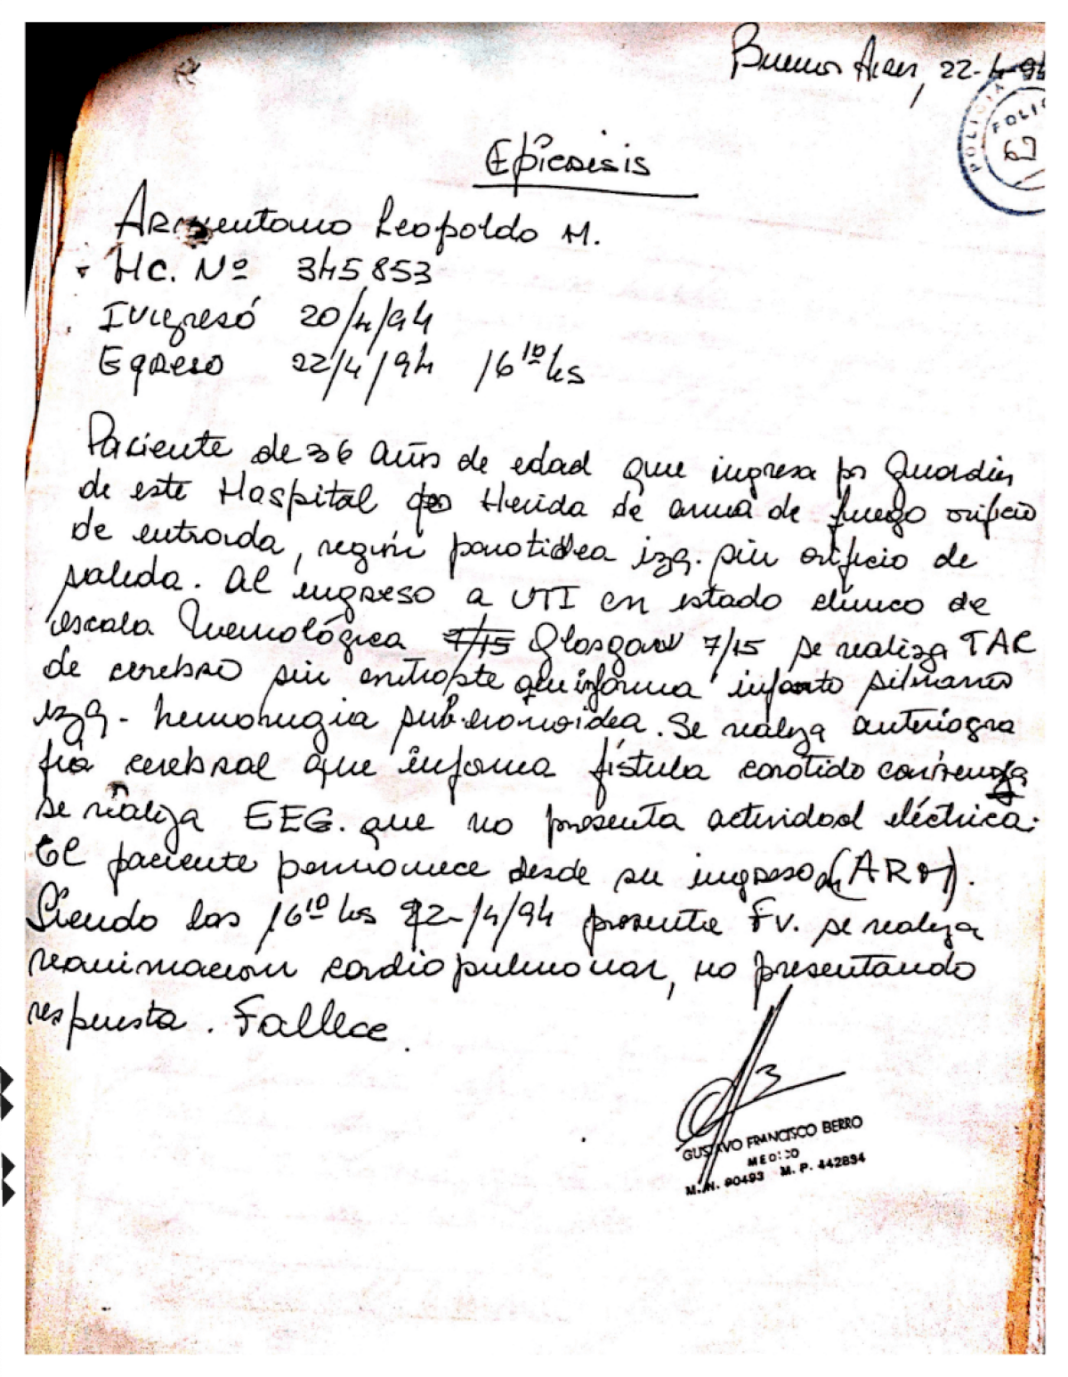 Buenos Aires, 22-4-94
POLICIA
FOLIO
62
Epicrisis
Armentano Leopoldo M.
HC. Nº 345853
Ingresó 20/4/94
Egreso 22/4/94 16¹⁰ hs
Paciente de 36 años de edad que ingresa por Guardia
de este Hospital Herida de arma de fuego orificio
de entrada, región parotidea izq. sin orificio de
salida. Al ingreso a UTI en estado clínico de
escala 7/15 Glasgow 7/15 se realiza TAC
de cerebro sin que informa infarto silviano
izq - hemorragia subaracnoidea. Se realiza arteriogra
fia cerebral que informa fístula carotido
se realiza EEG. que no presenta actividad eléctrica.
El paciente permanece desde su ingreso en (ARM).
Siendo las 16¹⁰ hs 22-/4/94 presenta FV. se realiza
reanimacion cardiopulmonar, no presentando
respuesta. Fallece.
GUSTAVO FRANCISCO BERRO
MEDICO
M.N. 90493 M. P. 442834